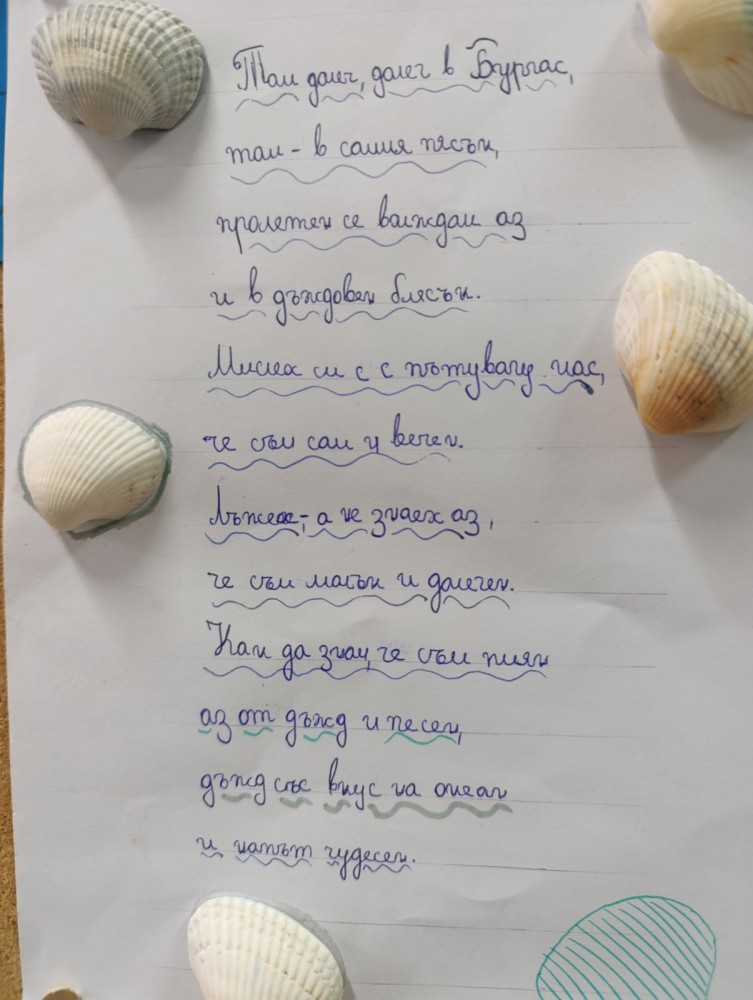 Там далеч, далеч в Бургас,
там - в самия пясък,
пролетен се виждам аз
и в дъждовен блясък.
Мислех си с с пътуващ глас,
че съм сам и вечен.
Лъжех - а не знаех аз,
че съм малък и далечен.
Как да знам, че съм пиян
аз от дъжд и песен,
дъжд със вкус на океан
и напът чудесен.